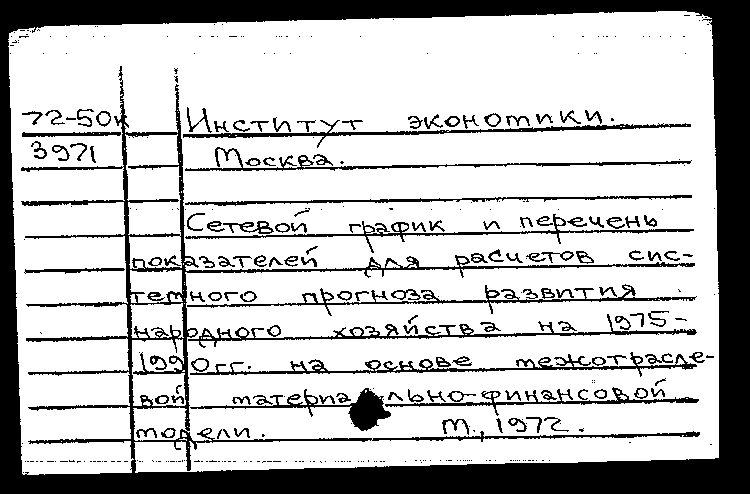 72-50к Институт экономики.
3971 Москва.
Сетевой график и перечень
показателей для расчетов сис-
темного прогноза развития
народного хозяйства на 1975-
1990гг. на основе межотрасле-
вой материально-финансовой
модели. М, 1972.